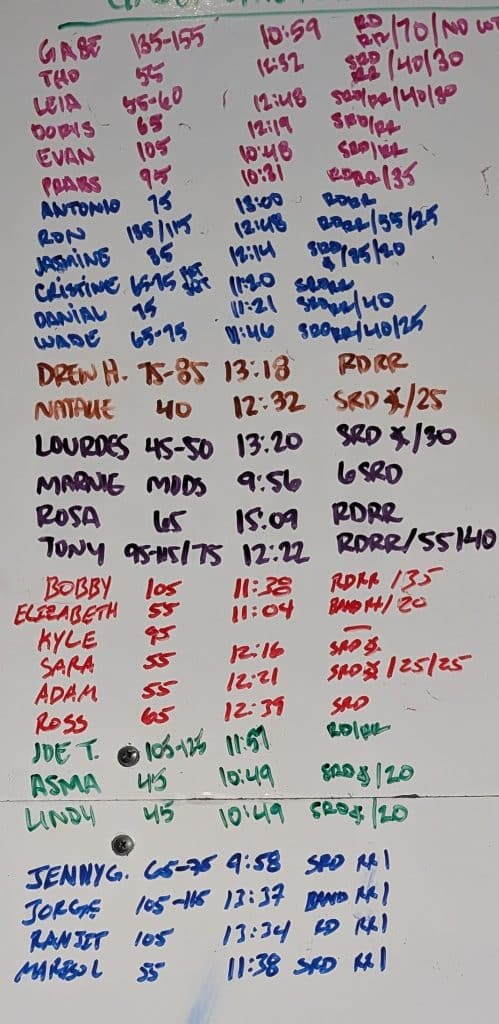 GABE 135-155 10:59 RD RR/70/NO
THO 55 12:32 SRD RR/40/30
LEIA 55-60 12:48 SRD/RR/40/30
DORIS 65 12:19 SRD/RR
EVAN 105 10:48 SRD/RR
PRABS 95 10:31 RDRR/35
ANTONIO 75 13:00 RDRR
RON 135/115 12:48 RDRR/55/25
JASMINE 85 12:14 SRD /35/20
CRISTINE 65-75 11:20 SRDRR
DANIAL 75 11:21 SRDRR/40
WADE 65-75 11:46 SRDRR/40/25
DREW H. 75-85 13:18 RDRR
NATALIE 40 12:32 SRD /25
LOURDES 45-50 13:20 SRD /30
MARNIE MODS 9:56 6SRD
ROSA 65 15:09 RDRR
TONY 95-115/75 12:22 RDRR/55/40
BOBBY 105 11:38 RDRR/35
ELIZABETH 55 11:04 BAND RR/20
KYLE 95 —
SARA 55 12:16 SRD
ADAM 55 12:21 SRD /25/25
ROSS 65 12:39 SRD
JOE T. 105-125 11:57 RD/RR
ASMA 45 10:49 SRD /20
LINDY 45 10:49 SRD /20
JENNY G. 65-75 9:58 SRD RR1
JORGE 105-115 13:37 BAND RR1
RANJIT 105 13:34 RD RR1
MARISOL 55 11:38 SRD RR1